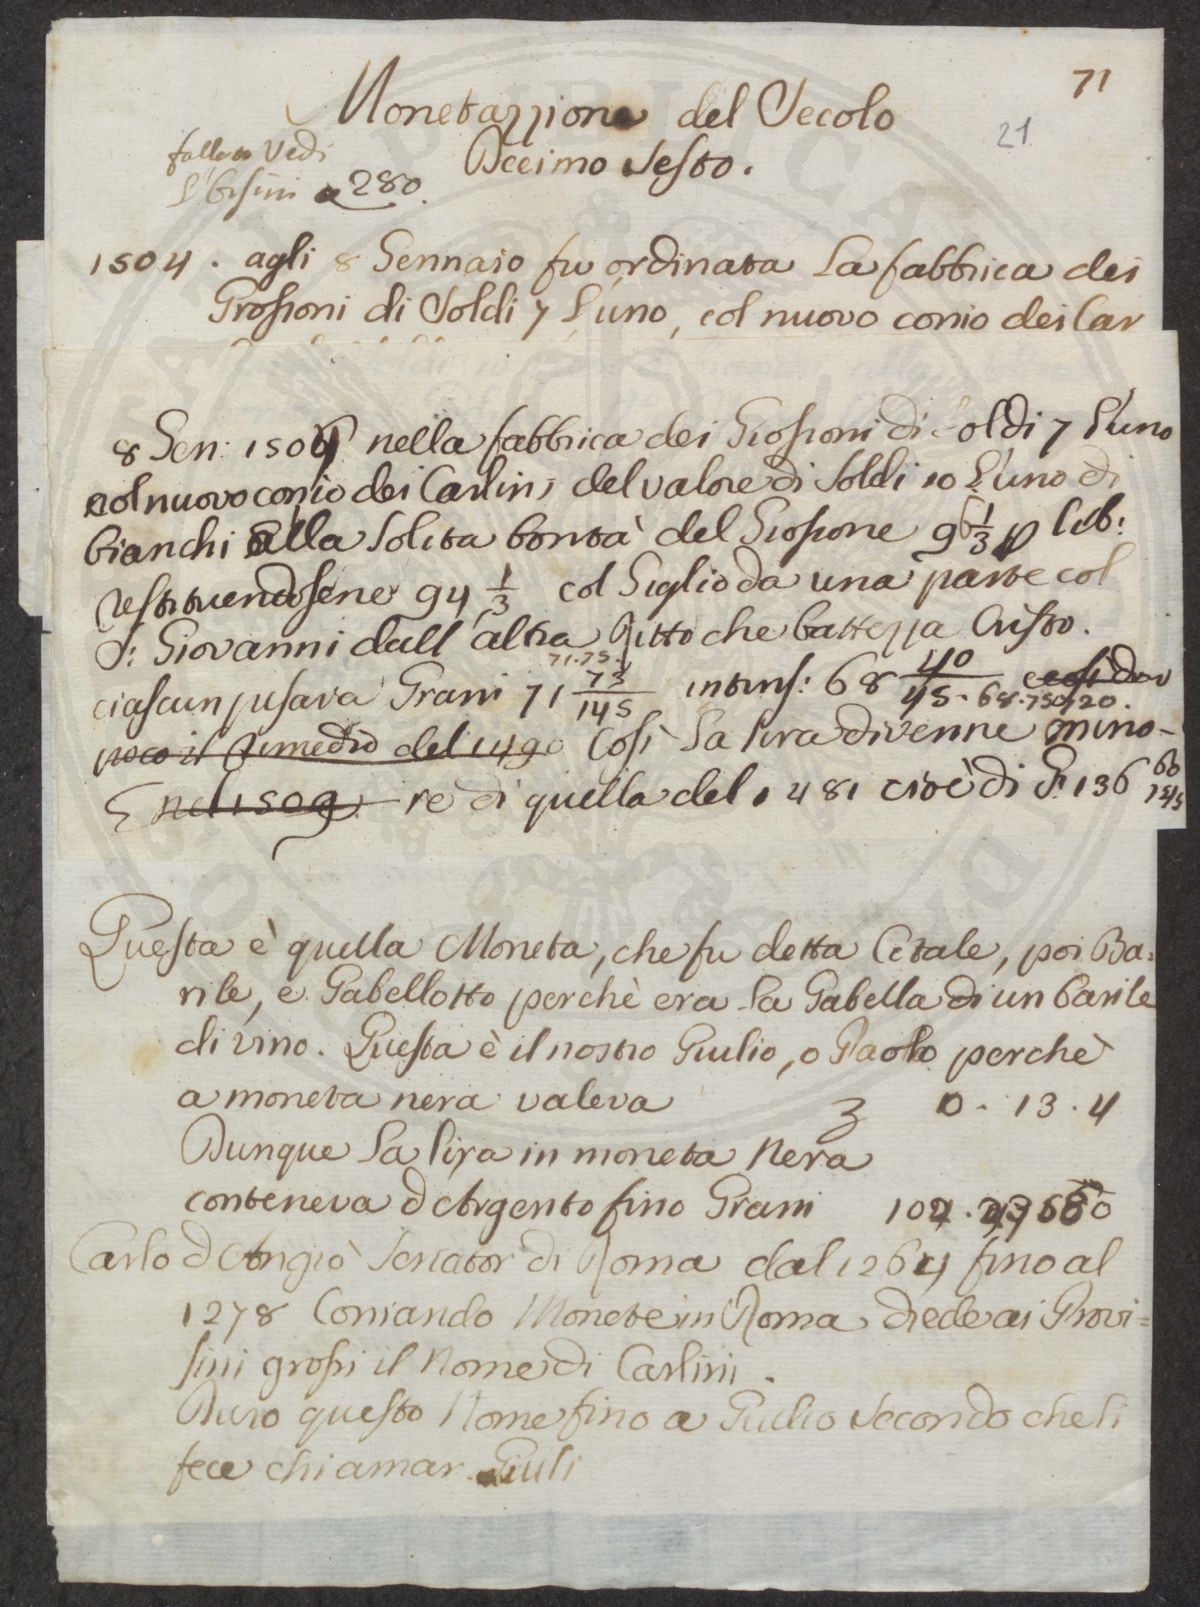 71
21
Monetazzione del Secolo
Decimo Sesto.
fallato Vedi
280.
1504. agli 8 Gennaio fu ordinata la fabbrica dei
Grossoni di Soldi 7 l'uno, col nuovo conio dei Car
8 Gen: 1504 nella fabbrica dei Grossoni di Soldi 7 l'uno
col nuovo conio dei Carlini del valore di Soldi 10 l'uno di
bianchi alla solita bontà del Grossone 96 1/3 p lib:
restituendosene 94 1/3 col Giglio da una parte col
S: Giovanni dall'altra ritto che battezza Cristo.
71.75.
ciascun pesava Grani 71 73/145 intrins: 68 40/45. 68.750/20.
poco il rimedio del 1490 Così la lira divenne mino-
nel 1509 re di quella del 1481 cioè di G: 136 60/145
Questa è quella Moneta, che fu detta Cetale, poi Ba=
rile, e Gabellotto perchè era la Gabella di un barile
di vino. Questa è il nostro Giulio, o Paolo perchè
a moneta nera valeva 0.13.4
Dunque la lira in moneta Nera
conteneva d'Argento fino Grani
Carlo d'Angiò Senator di Roma dal 1264 fino al
1278 Coniando Monete in Roma diede ai Provi=
sini grossi il Nome di Carlini.
Duro questo Nome fino a Giulio Secondo che li
fece chiamar Giuli